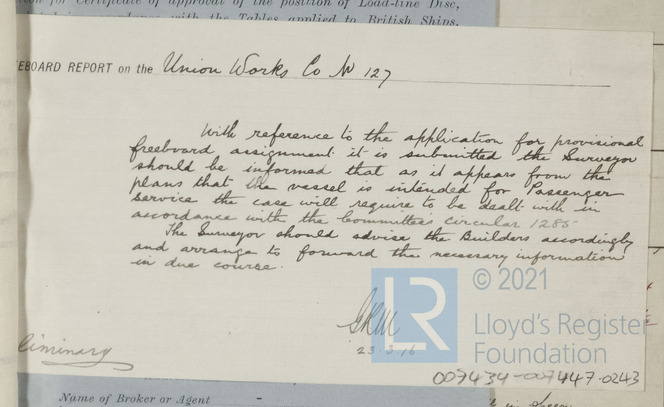 tion for Certificate of approval of the position of Load-line Disc,
with the Tables applied to British Ships,
EBOARD REPORT on the Union Works Co No 127
With reference to the application for provisional
freeboard assignment it is submitted the Surveyor
should be informed that as it appears from the
plans that the vessel is intended for Passenger
Service the case will require to be dealt with in
accordance with the Committee's Circular 1285
The Surveyor should advise the Builders accordingly
and arrange to forward the necessary information
in due course.
23.3.16
liminary
LR
© 2021
Lloyd's Register
Foundation
007434-007447-0243
Name of Broker or Agent